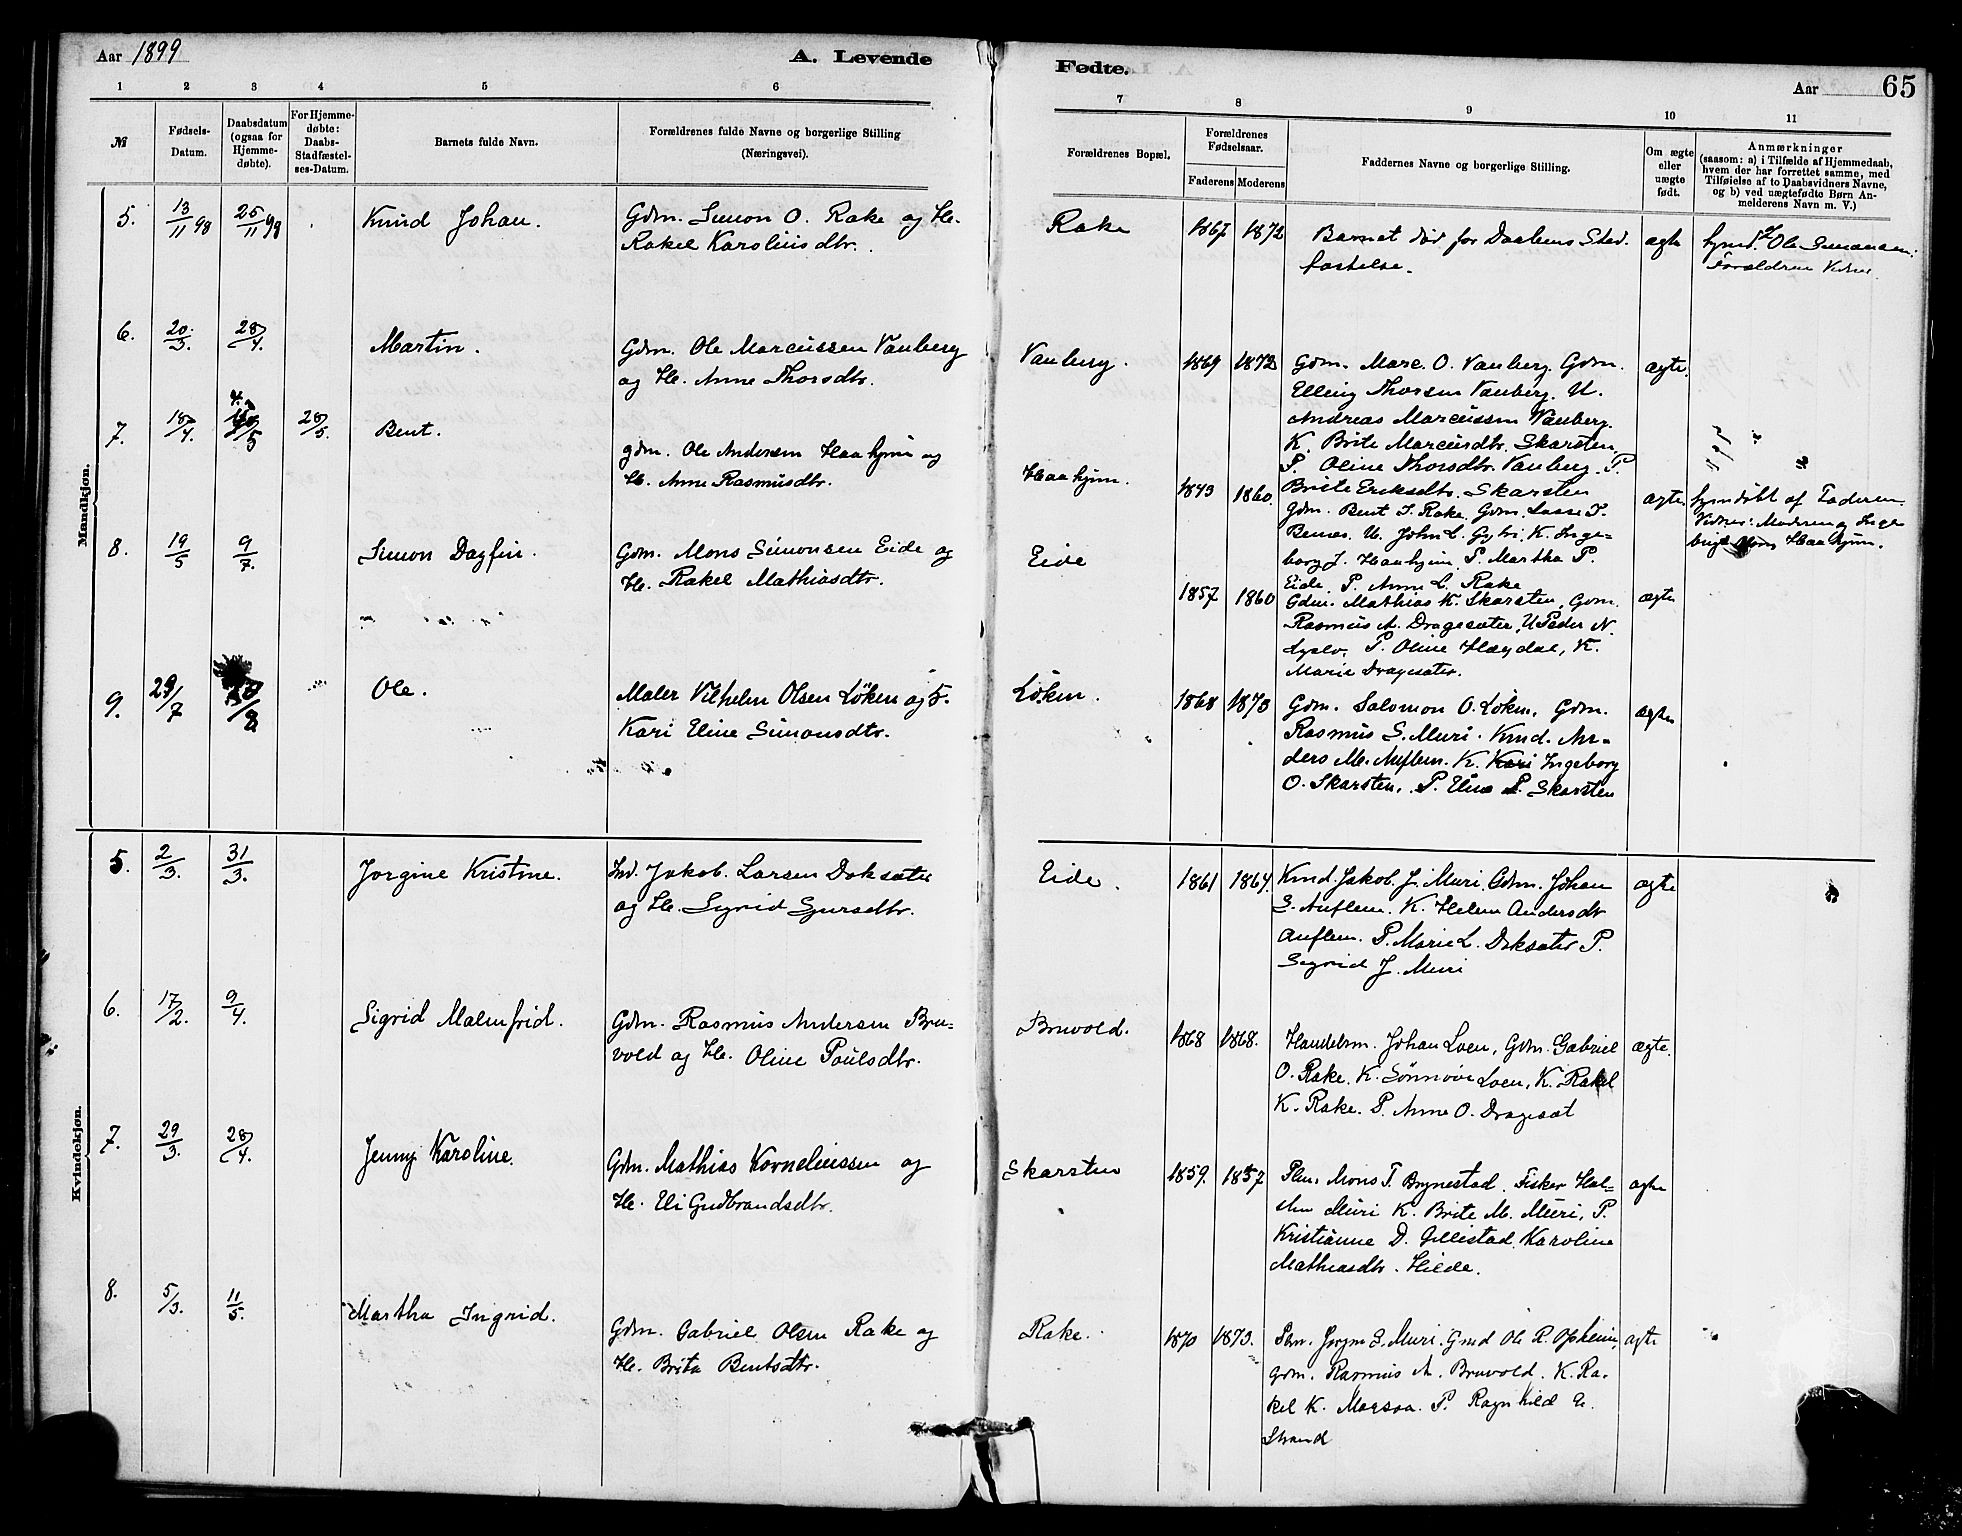 Aar 1899
A. Levende
1 2 3 4 5 6
№
Fødsels-Datum.
Daabsdatum (ogsaa for Hjemmedøbte).
For Hjemmedøbte: Daabs-Stadfæstelses-Datum.
Barnets fulde Navn.
Forældrenes fulde Navne og borgerlige Stilling
(Næringsvei).
Mandkjøn.
5. 13/11 98 25/11 98 Knud Johan. Gdm. Simon O. Rake og H.
Rakel Karoliusdtr.
6. 20/3. 28/4. Martin. Gdm. Ole Marcussen Vanberg
og H. Anne Thorsdtr.
7. 18/4. 28/5. Bent. gdm. Ole Andersen Haahjem og
H. Anne Rasmusdtr.
8. 19/5 9/7. Simon Dagfin. Gdm. Mons Simonsen Eide og
H. Rakel Mathiasdtr.
9. 29/7 Ole. Maler Vilhelm Olsen Löken og
Kari Eline Simonsdtr.
Kvindekjøn.
5. 2/3. 31/3. Jorgine Kristine. Ind. Jakob Larsen Doksæter
og H. Sigrid Sjursdtr.
6. 17/2. 9/4. Sigrid Malmfrid. Gdm. Rasmus Andersen Bru-
vold og H. Oline Poulsdtr.
7. 29/3. 28/4. Jenny Karoline. Gdm. Mathias Korneliussen og
H. Eli Gudbrandsdtr.
8. 5/3. 11/5. Martha Ingrid. Gdm. Gabriel Olsen Rake og
H. Brita Bentsdtr.
Fødte.
Aar 65
7 8 9 10 11
Forældrenes Bopæl.
Forældrenes Fødselsaar.
Faderens Moderens
Faddernes Navne og borgerlige Stilling.
Om ægte eller uægte født.
Anmærkninger
(saasom: a) i Tilfælde af Hjemmedaab,
hvem der har forrettet samme, med
Tilføielse af to Daabsvidners Navne,
og b) ved uægtefødte Børn An-
melderens Navn m. V.)
Rake 1867 1872 Barnet død før Daabens Stad- ægte hjmd. af Ole Simonsen.
fæstelse. Forældrene Vidner.
Vanberg. 1869 1872 Gdm. Marc. O. Vanberg. Gdm. ægte.
Elling Thorsen Vanberg. U.
Andreas Marcussen Vanberg.
K. Brite Marcusdtr. Skarsten,
P. Oline Thorsdtr. Vanberg. P.
Brite Eriksdtr. Skarsten
Haahjem. 1843 1860. Gdm. Bent J. Rake. Gdm. Lasse J. ægte hjemdöbt af Faderen
Benes. U. John L. Gytri. K. Inge- Vidner: Moderen og Inge
borg J. Haahjem. P. Martha P. Haahjem.
Eide. P. Anne L. Rake
Eide 1857 1860 Gdm. Mathias K. Skarsten, Gdm. ægte
Rasmus A. Dragesæter, U Peder N.
P. Oline Haugdal, K.
Marie Dragesæter.
Löken. 1868 1873 Gdm. Salomon O. Löken, Gdm. ægte
Rasmus S. Muri. Knud An-
ders M. Auflem. K. Ingeborg
O. Skarsten. P. Eline S. Skarsten
Eide. 1861 1864. Knud Jakob J. Muri. Gdm. Johan ægte
S. Auflem. K. Helene Andersdtr
Auflem. P. Marie L. Doksæter P.
Sigrid J. Muri
Bruvold. 1868 1868. Handelsm. Johan Loen, Gdm. Gabriel ægte.
O. Rake. K. Sönnöve Loen, K. Rakel
K. Rake. P. Anne O. Dragesæt
Skarsten 1859. 1857 Plm. Mons T. Brynestad. Fisker Hal-
Muri K. Brite M. Muri, P. ægte
Kristianne D. Gillestad. Karoline
Mathiasdtr. Hilde.
Rake. 1870 1873. Jörgen E. Muri. Ole R. Opheim, ægte
gdm. Rasmus A. Bruvold. K. Ra-
kel K. Maraas. P. Ragnhild E.
Strand